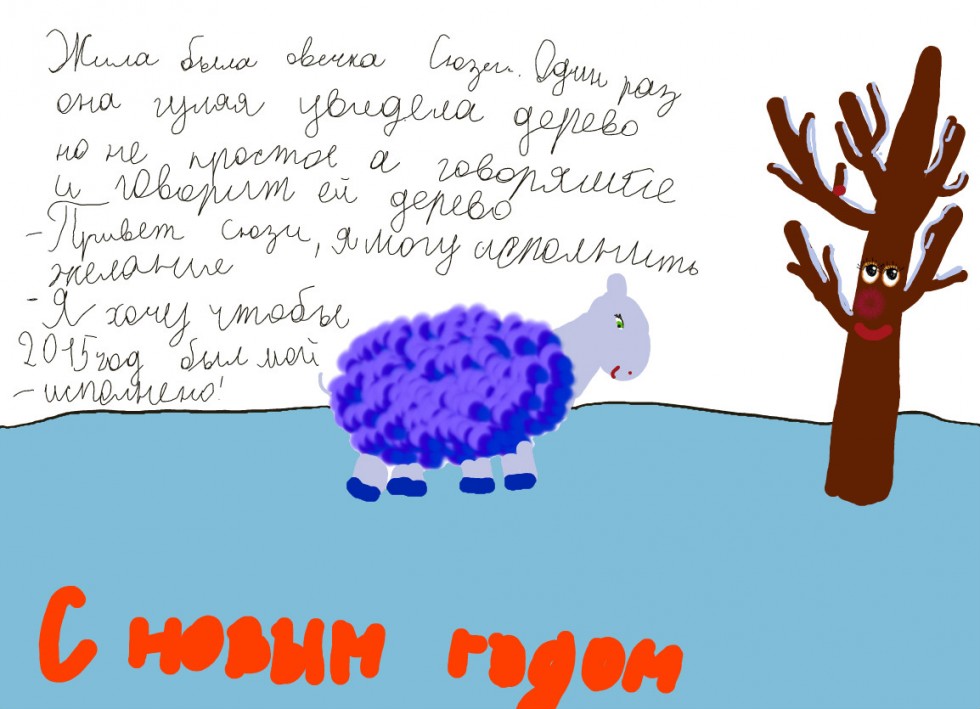 Жила была овечка Сюзи. Один раз
она гуляя увидела дерево
но не простое а говорящее
и говорит ей дерево
- Привет Сюзи, я могу исполнить
желание
- Я хочу чтобы
2015 год был мой
- исполнено!
С новым годом